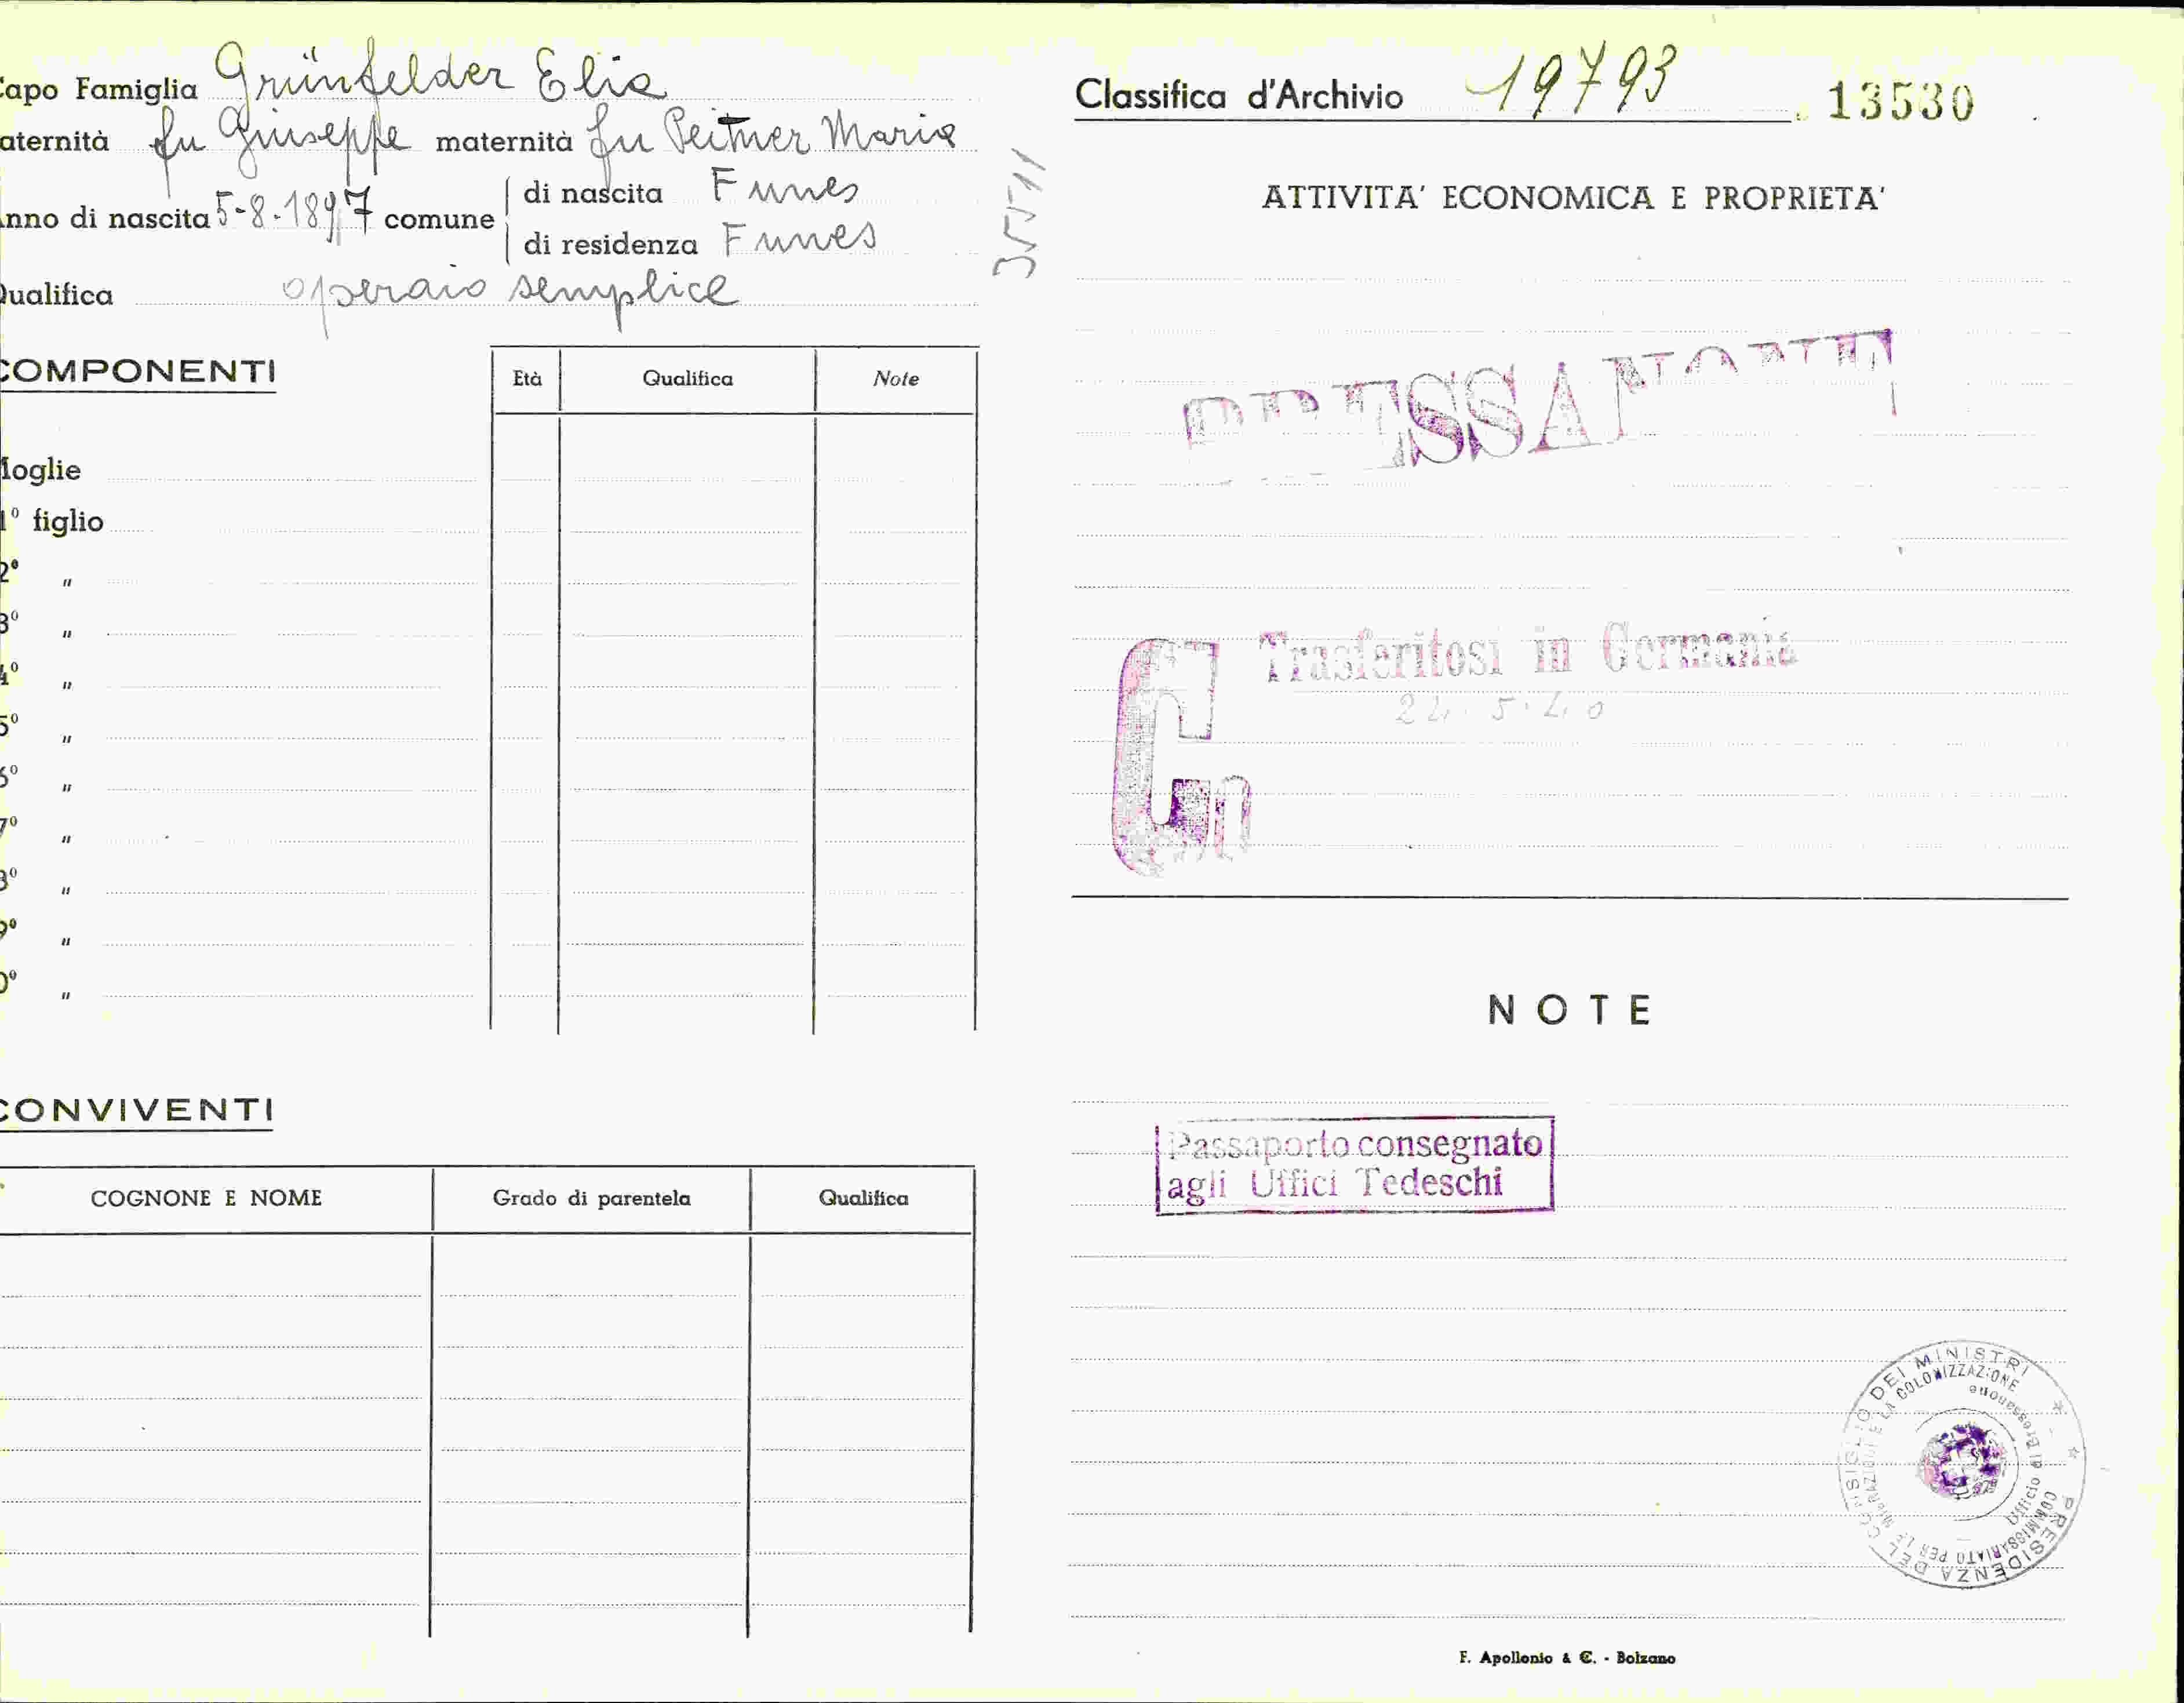 apo Famiglia Grünfelder Elia
aternità fu Giuseppe maternità fu Peitner Maria
nno di nascita 5-8-1897 comune di nascita Funes
di residenza Funes
ualifica operaio semplice
35511
COMPONENTI
Età Qualifica Note
oglie
1º figlio
2º "
3º "
4º "
5º "
6º "
7º "
8º "
9º "
0º "
CONVIVENTI
COGNONE E NOME Grado di parentela Qualifica
Classifica d'Archivio 19793 13530
ATTIVITA' ECONOMICA E PROPRIETA'
BRESSANONE
Trasferitosi in Germania
24.5.40
G
NOTE
Passaporto consegnato
agli Uffici Tedeschi
PRESIDENZA DEL CONSIGLIO DEI MINISTRI
COMMISSARIATO PER LE MIGRAZIONI E LA COLONIZZAZIONE
Ufficio di Bressanone
F. Apollonio & C. - Bolzano